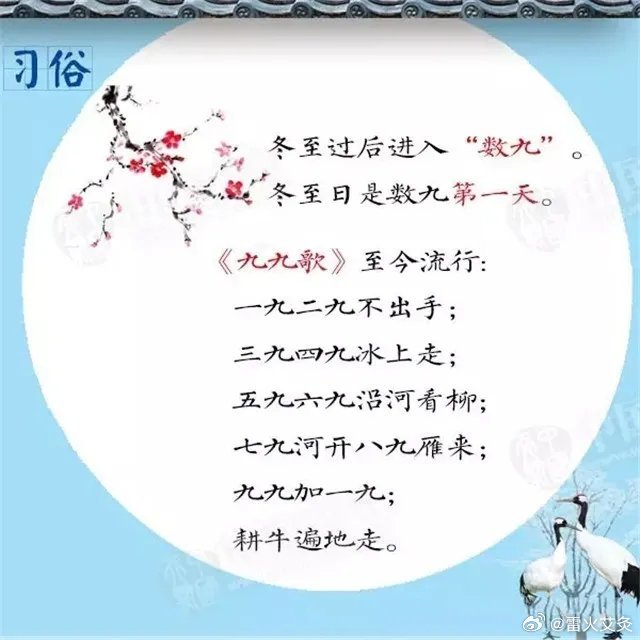 习俗
冬至过后进入“数九”。
冬至日是数九第一天。
《九九歌》至今流行:
一九二九不出手;
三九四九冰上走;
五九六九沿河看柳;
七九河开八九雁来;
九九加一九;
耕牛遍地走。
@雷火艾灸